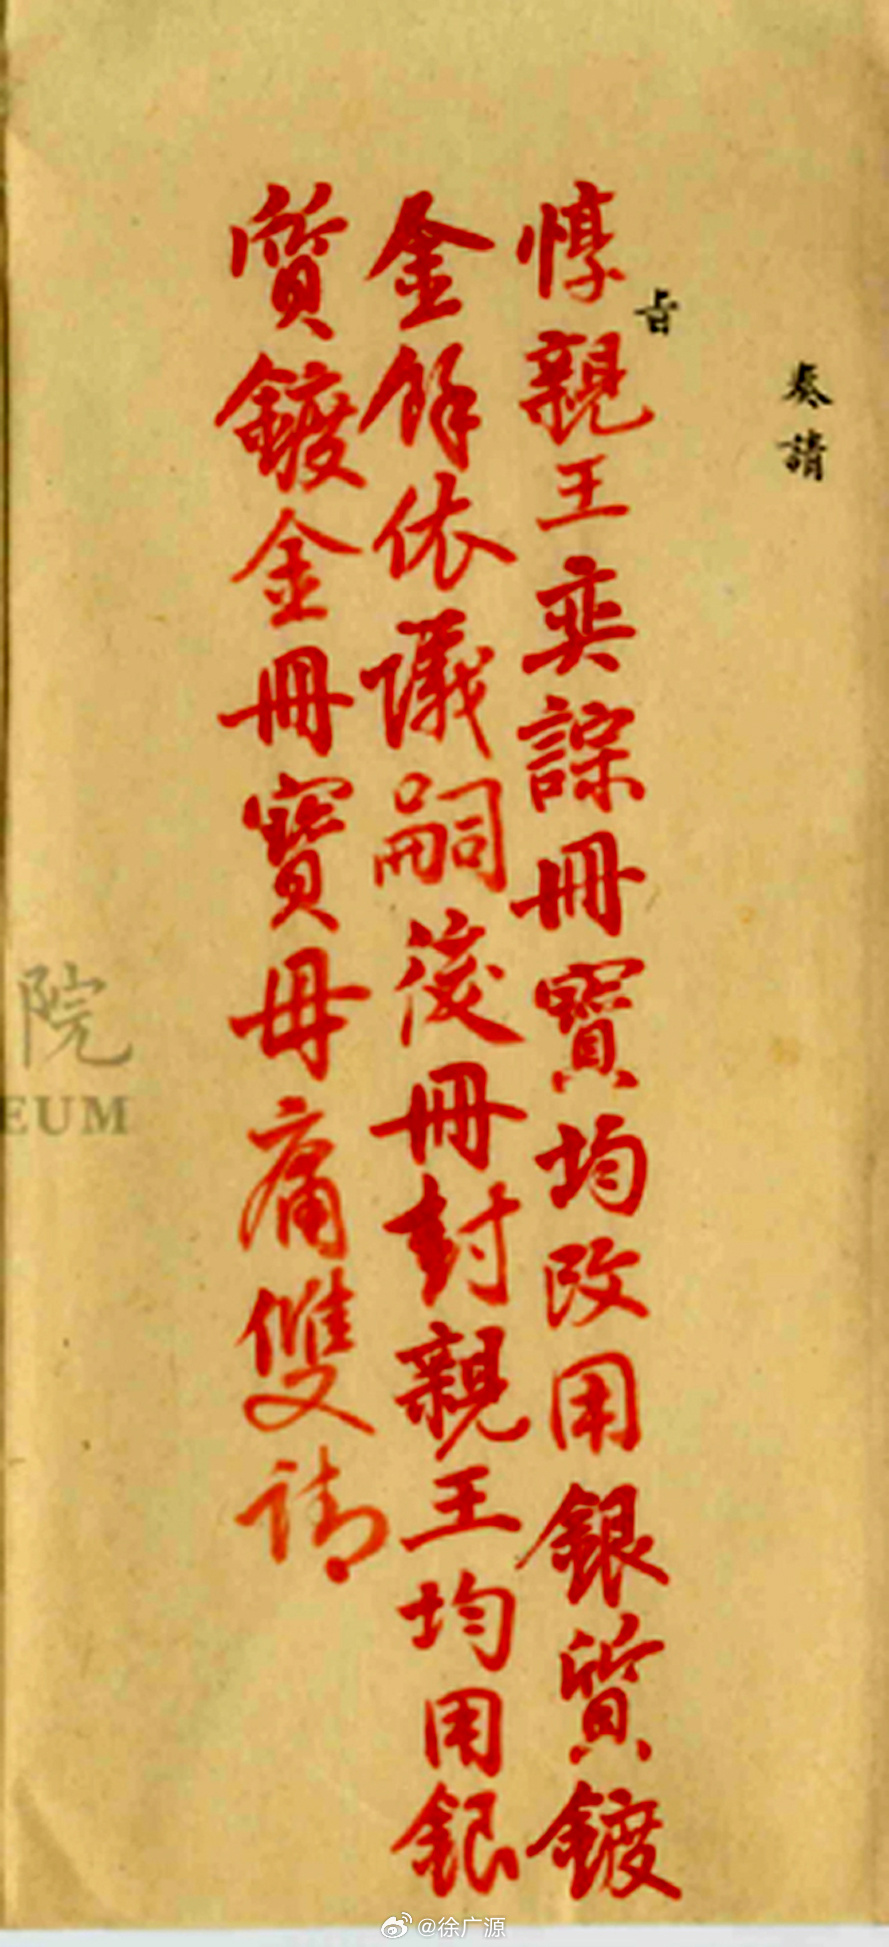 奏請
旨
惇親王奕誴冊寶均改用銀質鍍
金餘依議嗣後冊封親王均用銀
質鍍金冊寶毋庸雙請
院
EUM
@徐广源